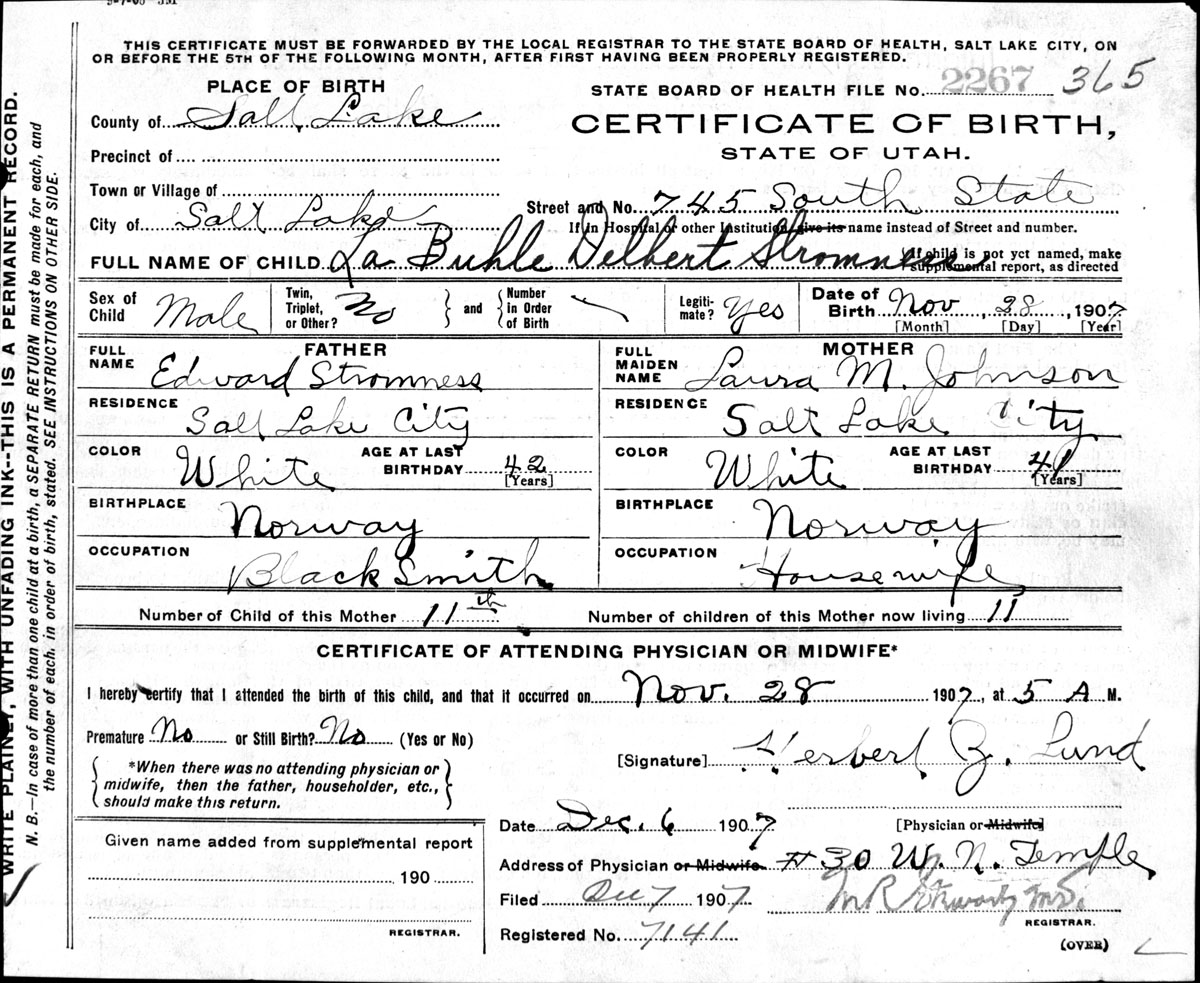 THIS CERTIFICATE MUST BE FORWARDED BY THE LOCAL REGISTRAR TO THE STATE BOARD OF HEALTH, SALT LAKE CITY, ON
OR BEFORE THE 5TH OF THE FOLLOWING MONTH, AFTER FIRST HAVING BEEN PROPERLY REGISTERED.
PLACE OF BIRTH
STATE BOARD OF HEALTH FILE No. 2267 365
County of Salt Lake
CERTIFICATE OF BIRTH,
STATE OF UTAH.
Precinct of
Town or Village of
City of Salt Lake
Street and No. 745 South State
If in Hospital or other Institution give its name instead of Street and number.
FULL NAME OF CHILD La Buhle Delbert Stromness
(If child is not yet named, make supplemental report, as directed
Sex of Child Male
Twin, Triplet, or Other? No } and { Number in Order of Birth
Legitimate? Yes
Date of Birth Nov, 28, 1907
[Month] [Day] [Year]
FATHER
FULL NAME Edward Stromness
RESIDENCE Salt Lake City
COLOR White AGE AT LAST BIRTHDAY 42 [Years]
BIRTHPLACE Norway
OCCUPATION Black Smith
MOTHER
FULL MAIDEN NAME Laura M. Johnson
RESIDENCE Salt Lake City
COLOR White AGE AT LAST BIRTHDAY 41 [Years]
BIRTHPLACE Norway
OCCUPATION Housewife
Number of Child of this Mother 11th Number of children of this Mother now living 11
CERTIFICATE OF ATTENDING PHYSICIAN OR MIDWIFE*
I hereby certify that I attended the birth of this child, and that it occurred on Nov. 28 1907, at 5 A M.
Premature No or Still Birth? No (Yes or No)
[Signature] Herbert Z. Lund
*When there was no attending physician or
midwife, then the father, householder, etc.,
should make this return.
Date Dec. 6 1907 [Physician or Midwife]
Address of Physician or Midwife # 30 W. N. Temple
Given name added from supplemental report
190
REGISTRAR.
Filed Dec 7 1907
M R Stewart M.D.
REGISTRAR.
Registered No. 7141
(OVER)
WRITE PLAINLY, WITH UNFADING INK--THIS IS A PERMANENT RECORD.
N. B.--In case of more than one child at a birth, a SEPARATE RETURN must be made for each, and
the number of each, in order of birth, stated. SEE INSTRUCTIONS ON OTHER SIDE.